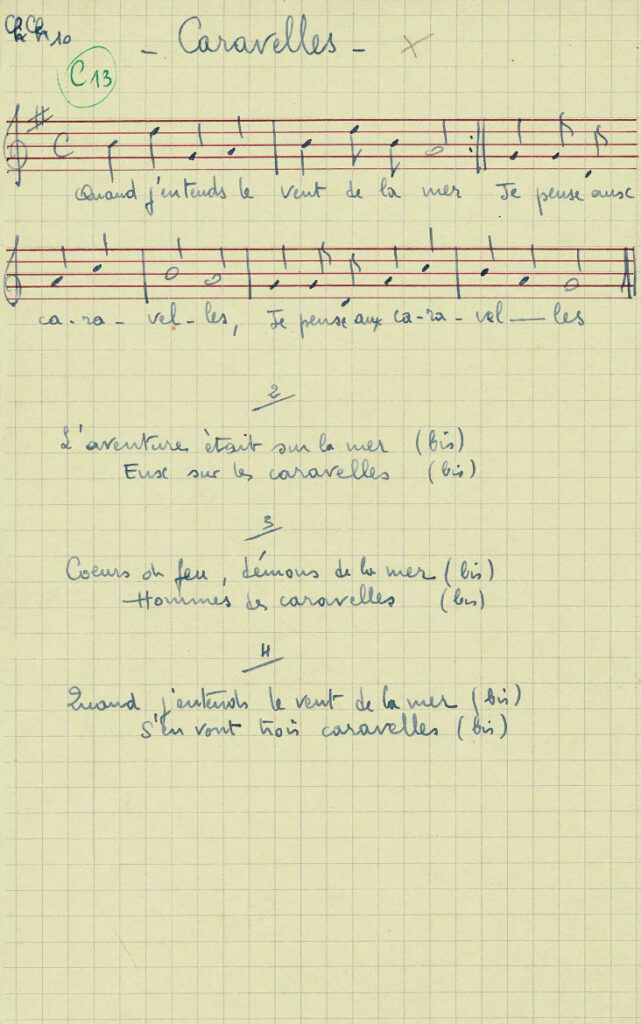 - Caravelles - x
C13
Quand j'entends le vent de la mer Je pense aux
ca-ra-vel-les, Je pense aux ca-ra-vel-les
2
L'aventure était sur la mer (bis)
Eux sur les caravelles (bis)
3
Coeurs en feu, démons de la mer (bis)
Hommes des caravelles (bis)
4
Quand j'entends le vent de la mer (bis)
S'en vont trois caravelles (bis)